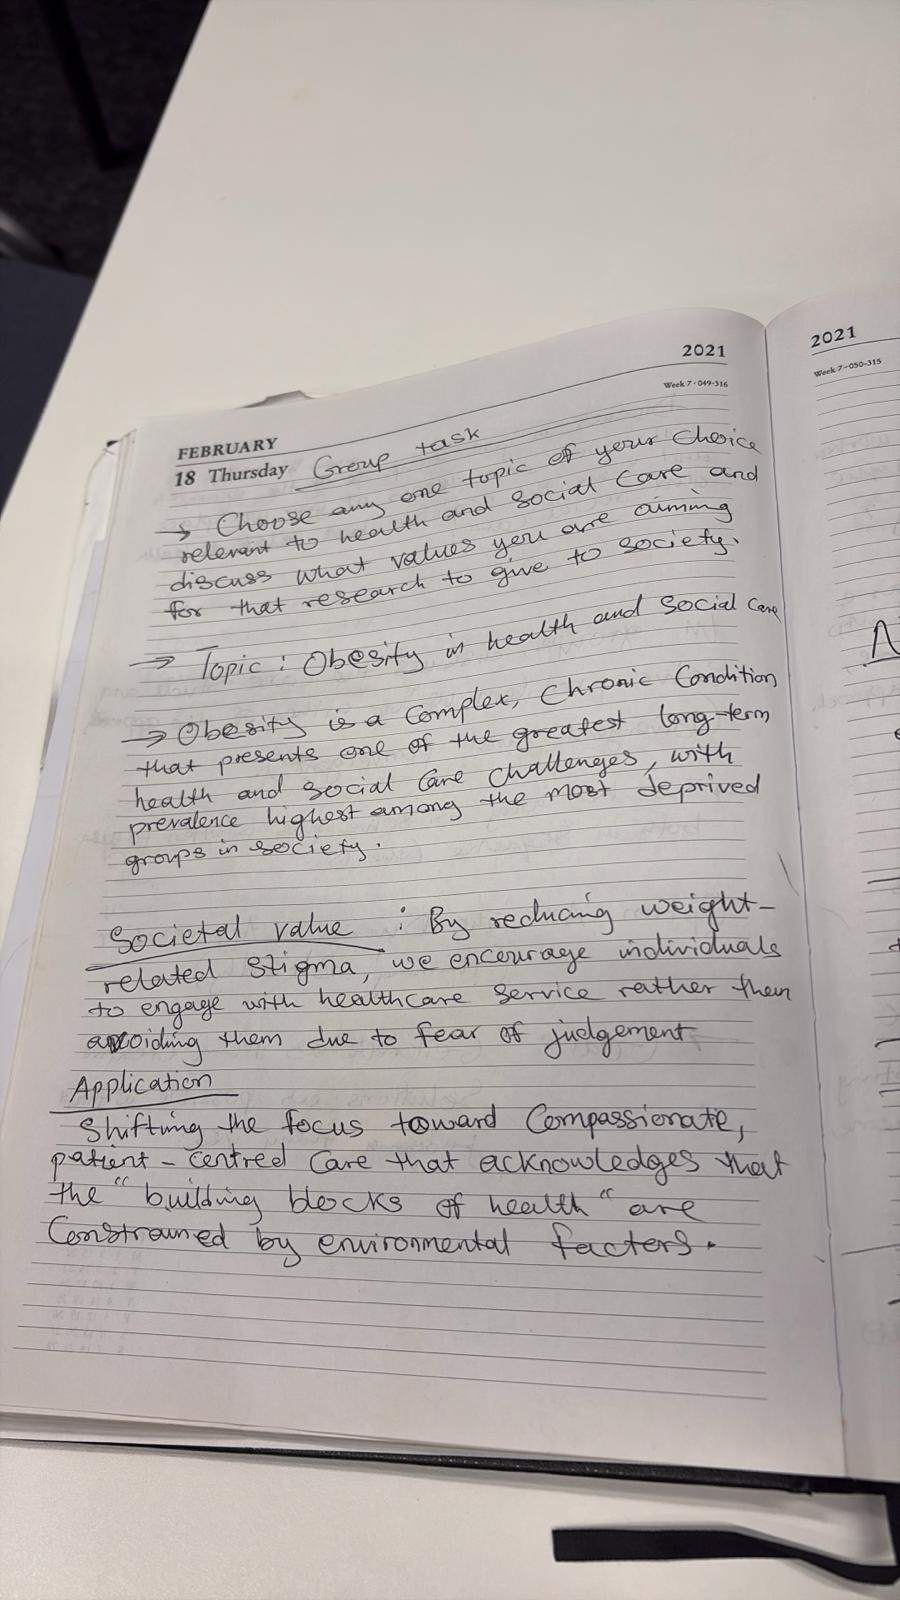 2021
Week 7 · 049-316
FEBRUARY
18 Thursday Group task
→ Choose any one topic of your choice
relevant to health and social care and
discuss what values you are aiming
for that research to give to society.
→ Topic : Obesity in health and social care
→ Obesity is a complex, chronic condition
that presents one of the greatest long-term
health and social care challenges, with
prevalence highest among the most deprived
groups in society.
Societal value : By reducing weight-
related stigma, we encourage individuals
to engage with healthcare service rather then
avoiding them due to fear of judgement
Application
Shifting the focus toward compassionate,
patient-centred care that acknowledges that
the "building blocks of health" are
constrained by environmental factors.
2021
Week 7-050-315